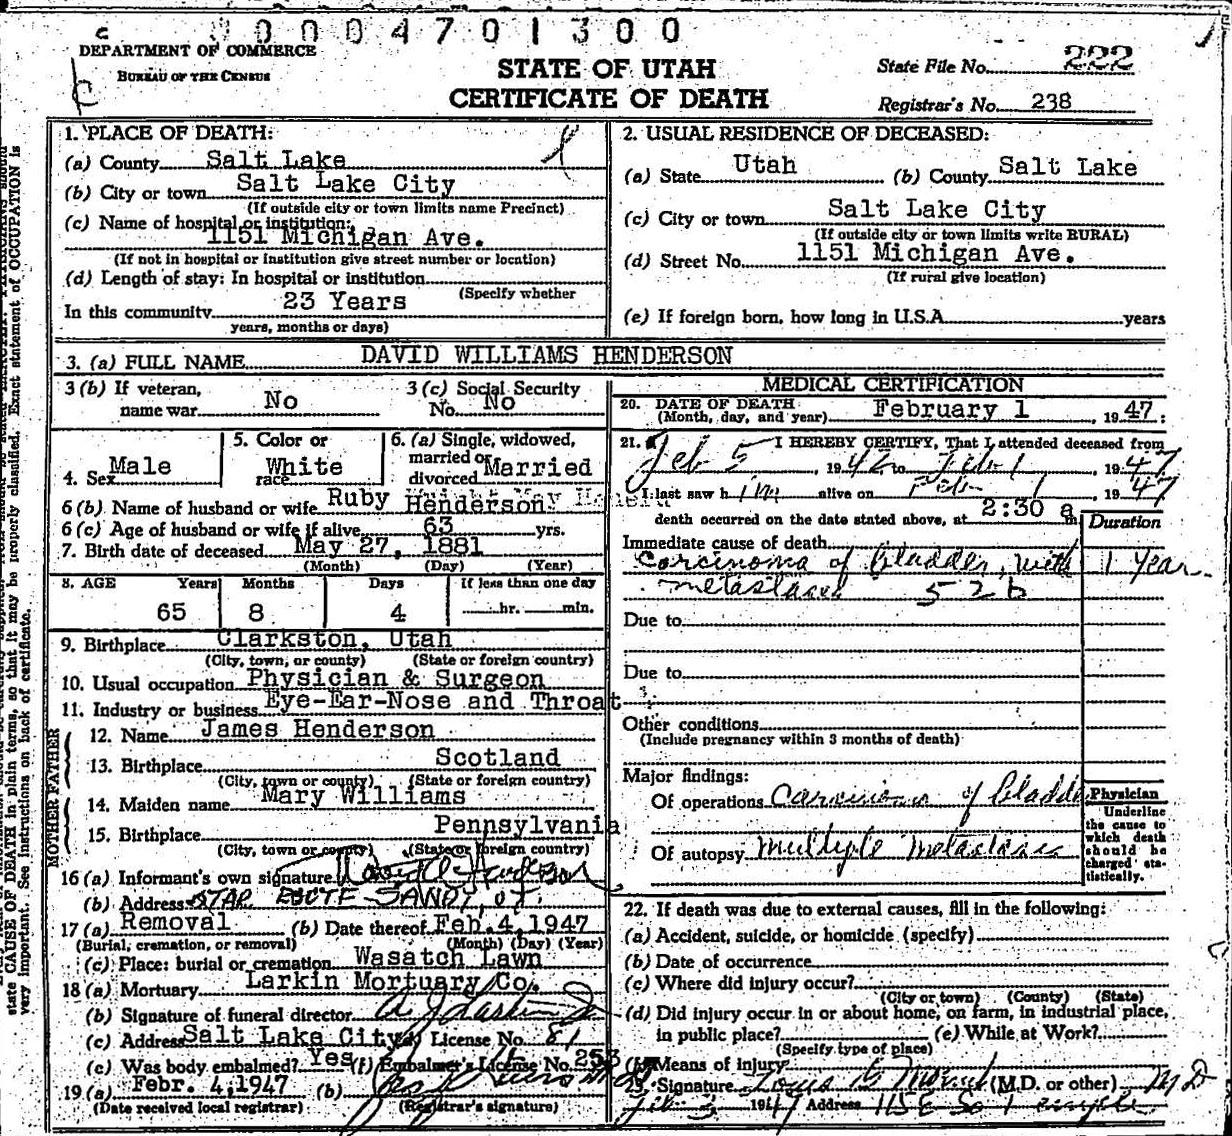 0004701300
DEPARTMENT OF COMMERCE
BUREAU OF THE CENSUS
STATE OF UTAH
CERTIFICATE OF DEATH
State File No. 222
Registrar's No. 238
1. PLACE OF DEATH:
(a) County Salt Lake
(b) City or town Salt Lake City
(If outside city or town limits name Precinct)
(c) Name of hospital or institution:
1151 Michigan Ave.
(If not in hospital or institution give street number or location)
(d) Length of stay: In hospital or institution
(Specify whether
In this community 23 Years
years, months or days)
2. USUAL RESIDENCE OF DECEASED:
(a) State Utah (b) County Salt Lake
(c) City or town Salt Lake City
(If outside city or town limits write RURAL)
(d) Street No. 1151 Michigan Ave.
(If rural give location)
(e) If foreign born, how long in U.S.A. years
3. (a) FULL NAME DAVID WILLIAMS HENDERSON
3 (b) If veteran, name war No
3 (c) Social Security No. No
4. Sex Male
5. Color or race White
6. (a) Single, widowed, married or divorced Married
6 (b) Name of husband or wife Ruby Henderson
6 (c) Age of husband or wife if alive 63 yrs.
7. Birth date of deceased May 27, 1881
(Month) (Day) (Year)
8. AGE Years Months Days If less than one day
65 8 4 hr. min.
9. Birthplace Clarkston, Utah
(City, town, or county) (State or foreign country)
10. Usual occupation Physician & Surgeon
11. Industry or business Eye-Ear-Nose and Throat
FATHER
12. Name James Henderson
13. Birthplace Scotland
(City, town or county) (State or foreign country)
MOTHER
14. Maiden name Mary Williams
15. Birthplace Pennsylvania
(City, town or county) (State or foreign country)
16 (a) Informant's own signature
(b) Address STAR ROUTE SANDY, UT.
17 (a) Removal (b) Date thereof Feb. 4, 1947
(Burial, cremation, or removal) (Month) (Day) (Year)
(c) Place: burial or cremation Wasatch Lawn
18 (a) Mortuary Larkin Mortuary Co.
(b) Signature of funeral director
(c) Address Salt Lake City (d) License No. 81
(e) Was body embalmed? Yes (f) Embalmer's License No. 253
19 (a) Febr. 4, 1947 (b)
(Date received local registrar) (Registrar's signature)
MEDICAL CERTIFICATION
20. DATE OF DEATH
(Month, day, and year) February 1 1947
21. I HEREBY CERTIFY, That I attended deceased from
Feb 5, 1942 to Feb 1, 1947
I last saw him alive on Feb 1, 1947
death occurred on the date stated above, at 2:30 a m
Duration
Immediate cause of death
Carcinoma of bladder, with 1 Year
metastases 52b
Due to
Due to
Other conditions
(Include pregnancy within 3 months of death)
Major findings:
Of operations Carcinoma of bladder
Of autopsy Multiple metastasis
Physician
Underline the cause to which death should be charged statistically.
22. If death was due to external causes, fill in the following:
(a) Accident, suicide, or homicide (specify)
(b) Date of occurrence
(c) Where did injury occur?
(City or town) (County) (State)
(d) Did injury occur in or about home, on farm, in industrial place,
in public place? (e) While at Work?
(Specify type of place)
(f) Means of injury
23. Signature Louis G (M.D. or other) MD
Feb 3, 1947 Address 115 E So Temple
state CAUSE OF DEATH in plain terms, so that it may be properly classified. Exact statement of OCCUPATION is
very important. See instructions on back of certificate.